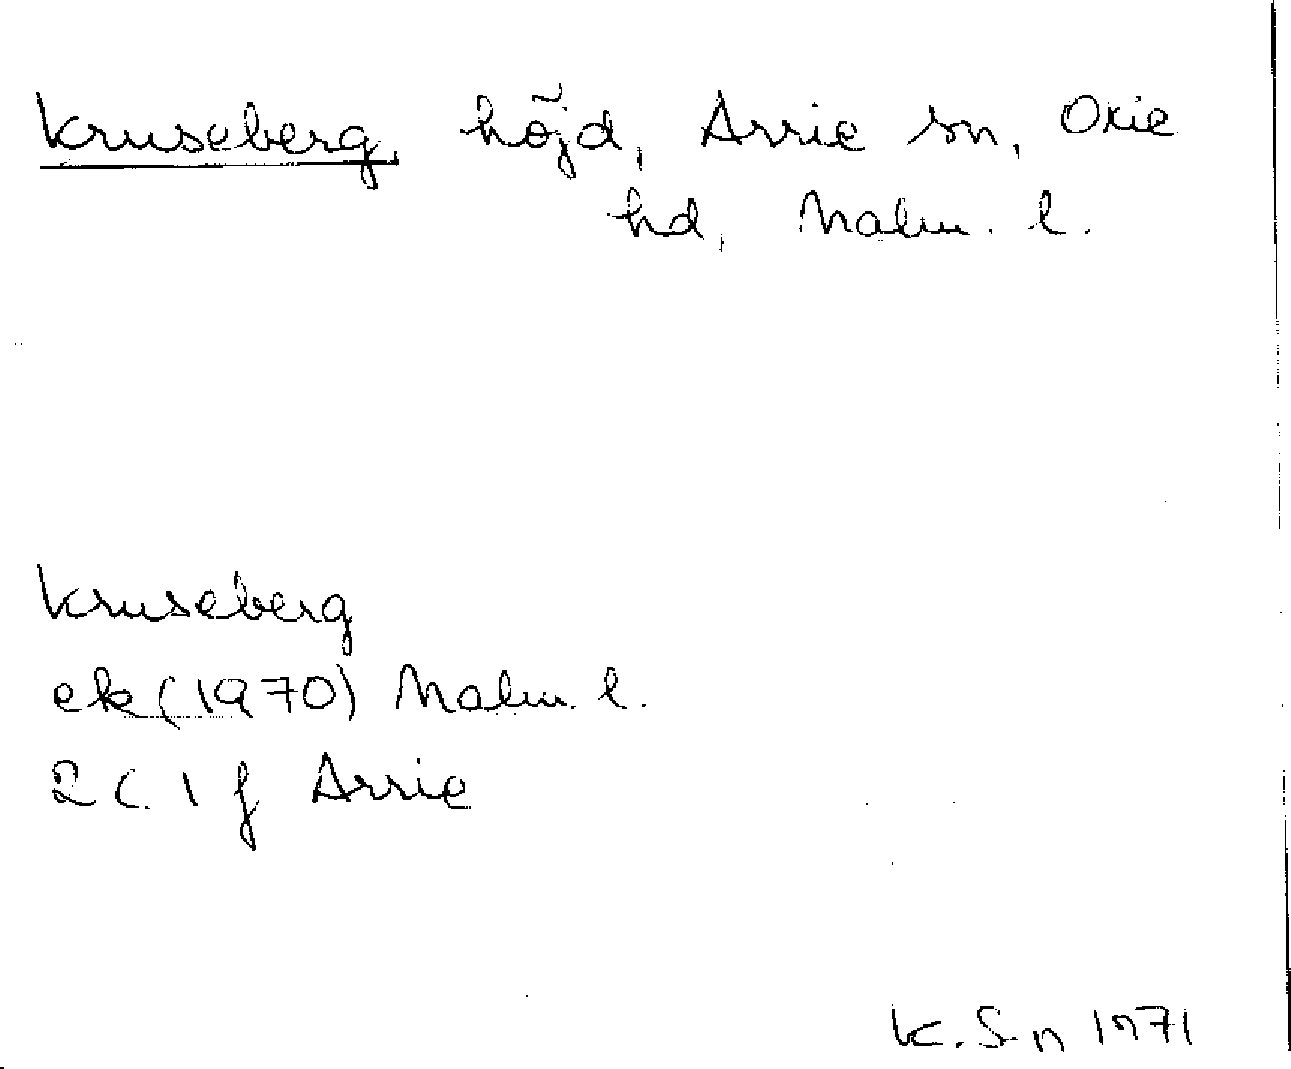 Kruseberg, höjd, Arrie sn, Oxie
hd, Malm. l.
Kruseberg
ek (1970) Malm. l.
2 C 1 f Arrie
K. S-n 1971